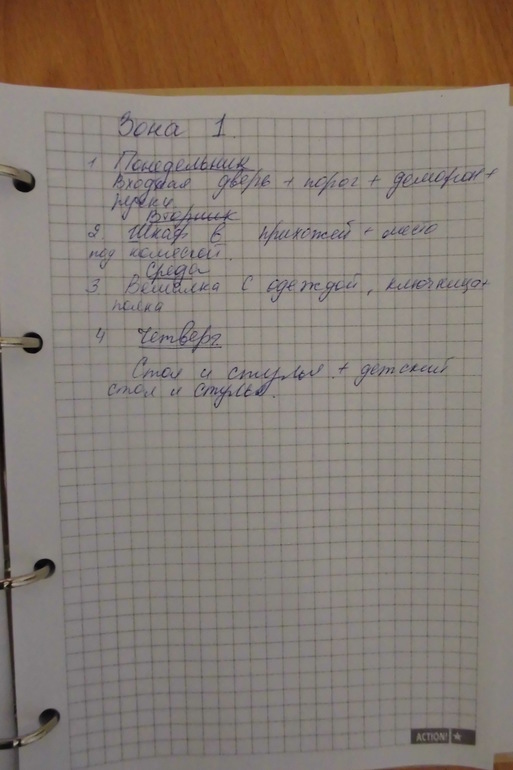 Зона 1.
1 Понедельник
Входная дверь + порог + +
ручки
Вторник
2 Шкаф в прихожей + место
под
Среда
3. Вешалка с одеждой, ключница+
полка
4 Четверг.
Стол и стулья + детский
стол и стулья.
ACTION!